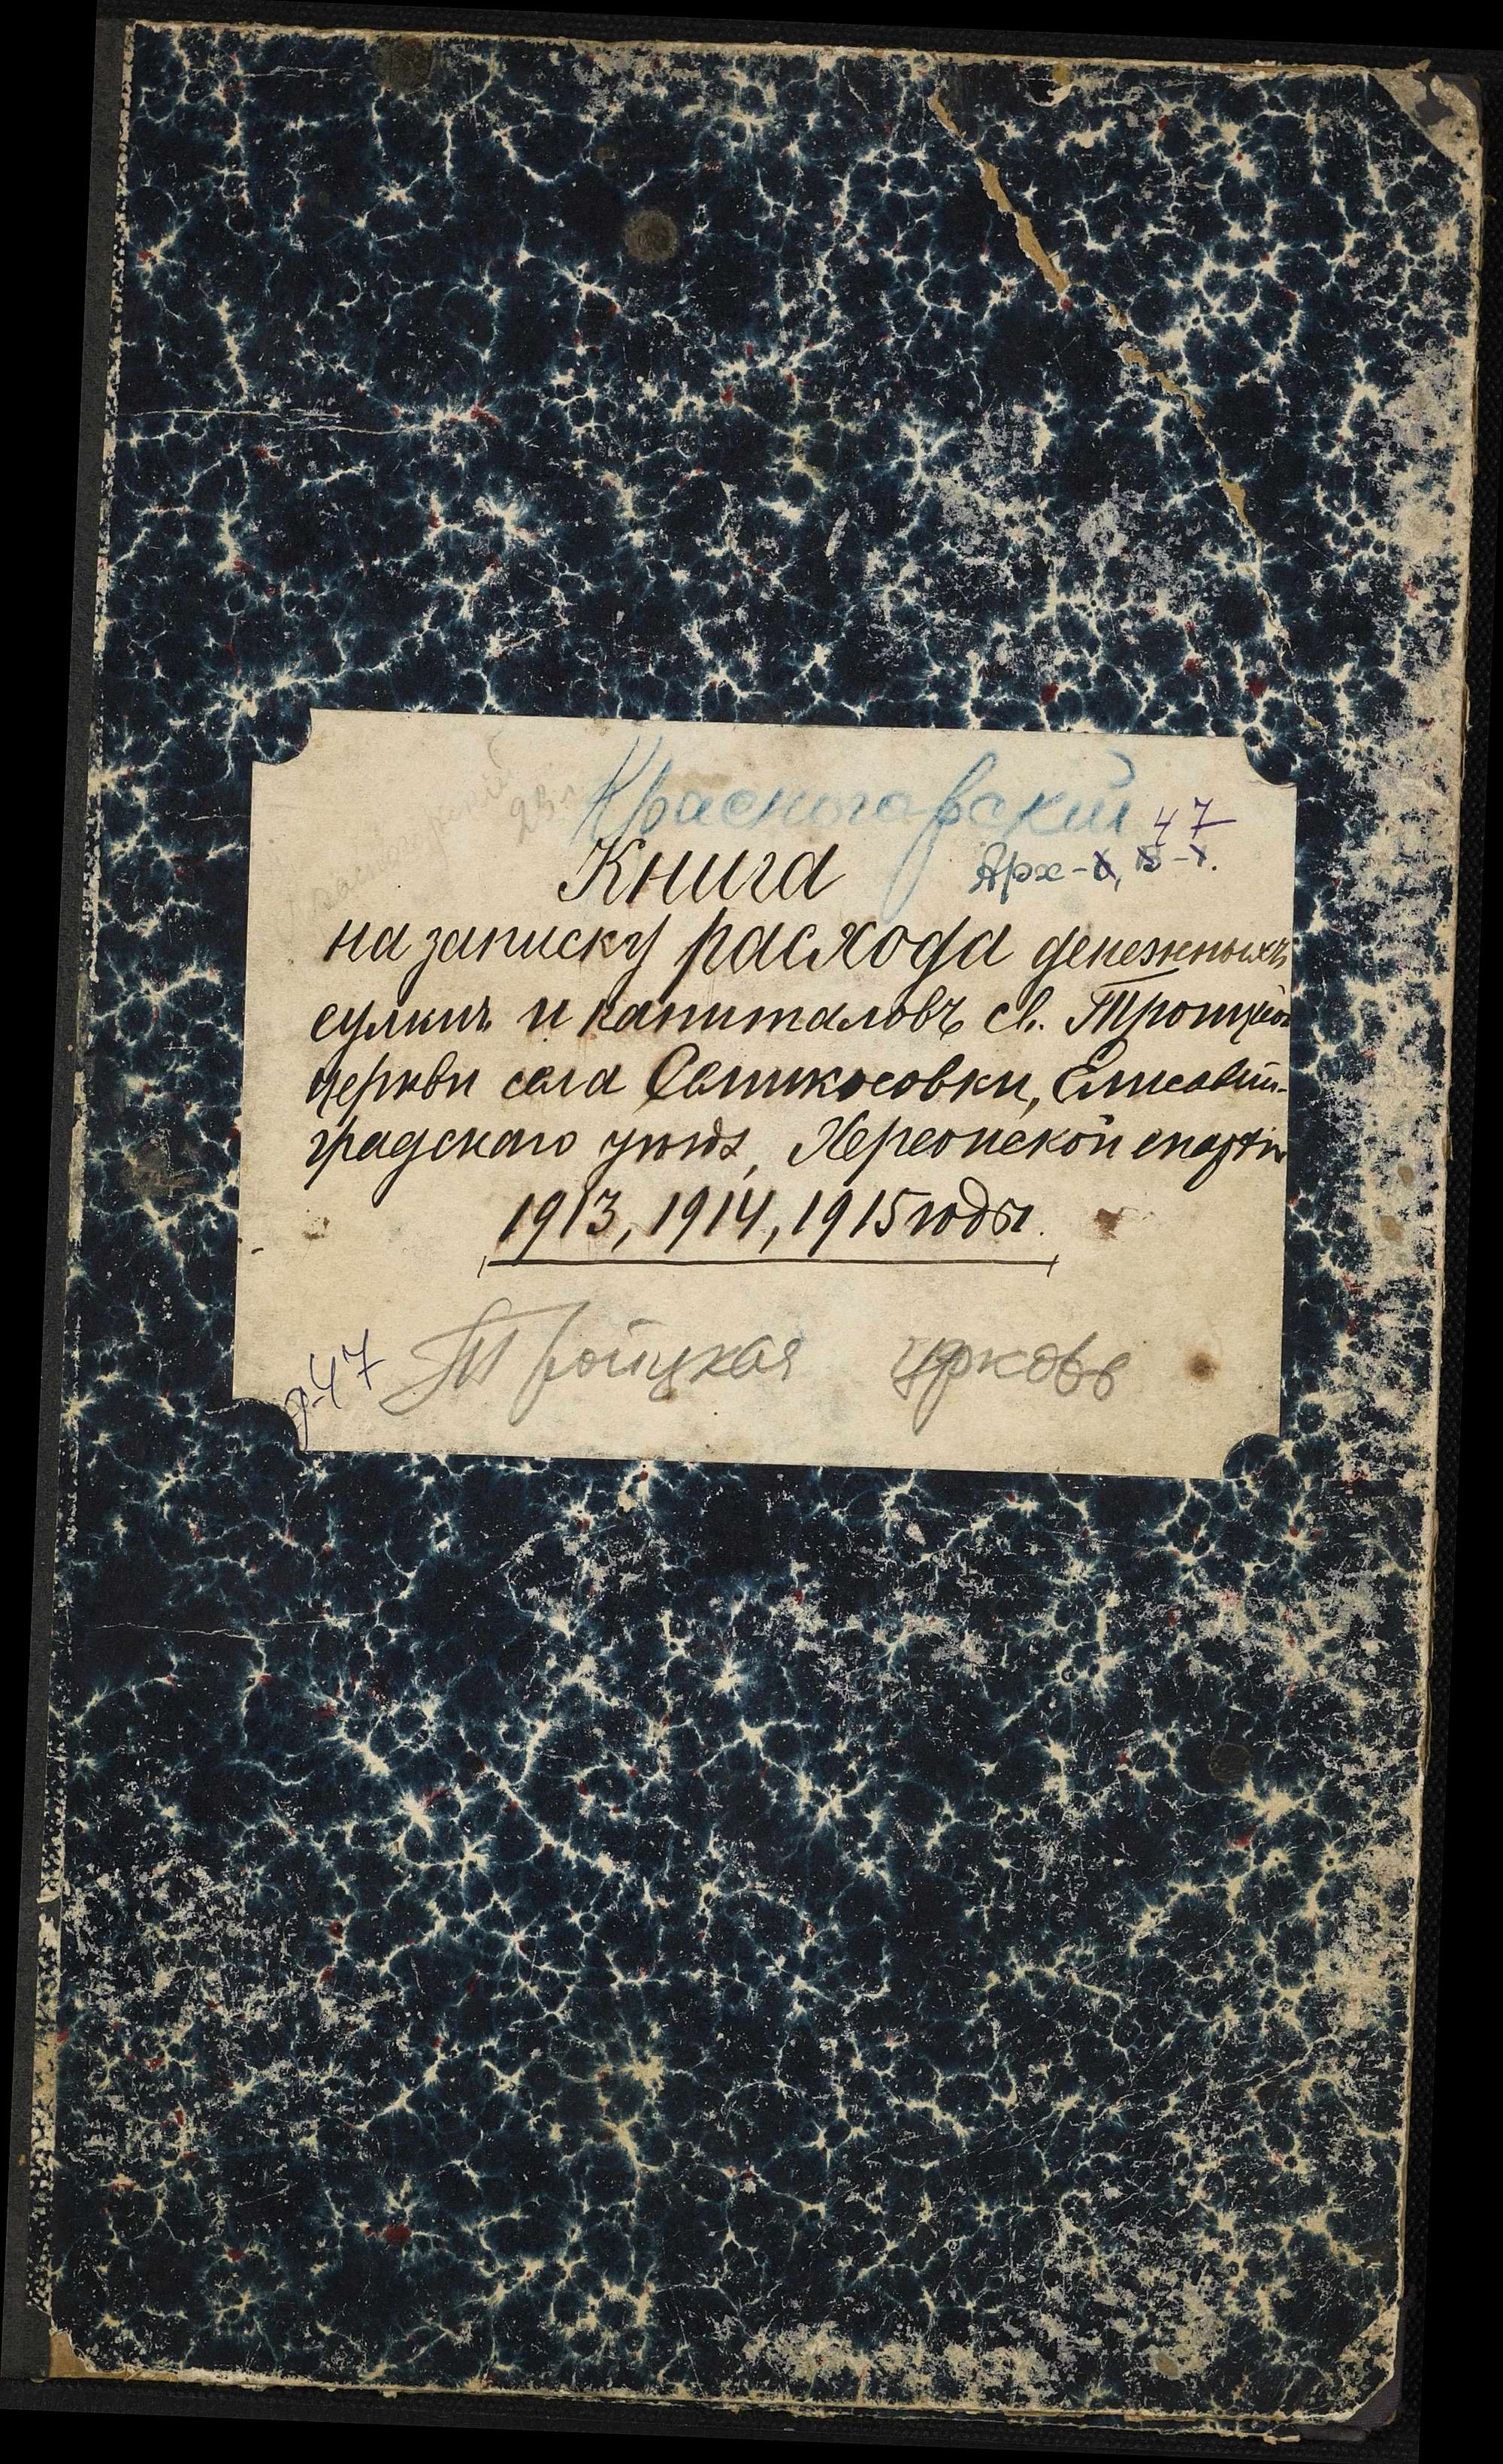 Красногорский
47
Книга
Арх-
на записку расхода денежныхъ
суммъ и капиталовъ св. Троицкой
церкви села Великосовки, Елисавет-
градскаго уѣзда, Херсонской епархіи
1913, 1914, 1915 годы.
Троицкая церковь
р-47